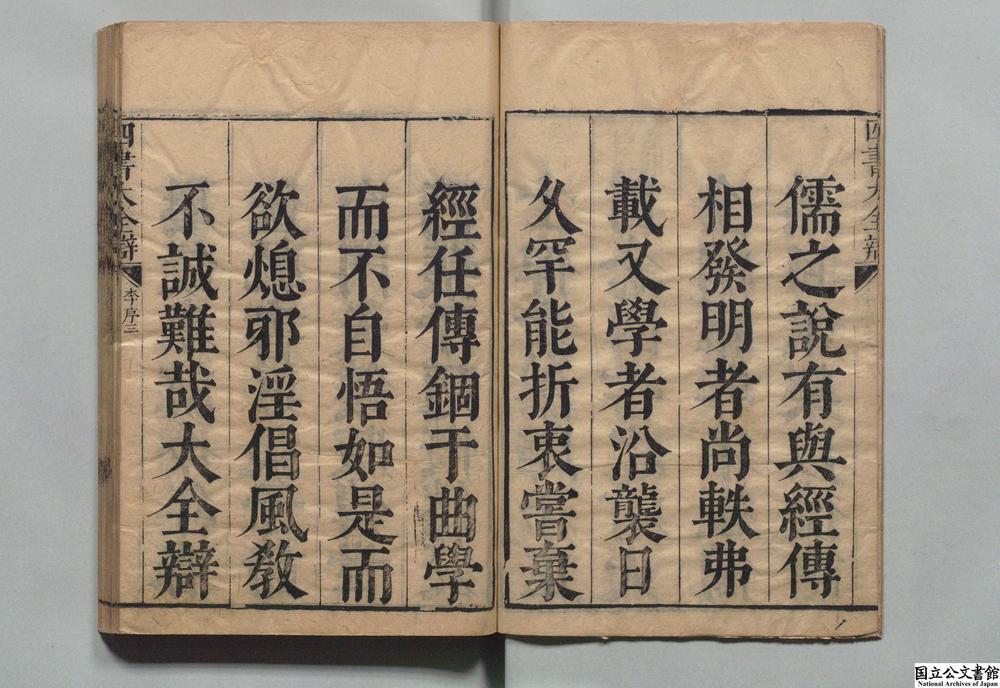 四書大全辯
儒之說有與經傳
相發明者尚軼弗
載又學者沿襲日
久罕能折衷嘗棄
經任傳錮于曲學
而不自悟如是而
欲熄邪淫倡風敎
不誠難哉大全辯
四書大全辯
李序三
国立公文書館
National Archives of Japan